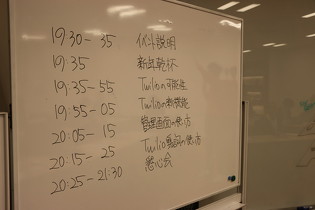 19:30 - 35 イベント説明
19:35 乾杯
19:35 - 55 Twilioの可能性
19:55 - 05 Twilioの新機能
20:05 - 15 管理画面の使い方
20:15 - 25 Twilio電話の使い方
20:25 - 21:30 懇心会